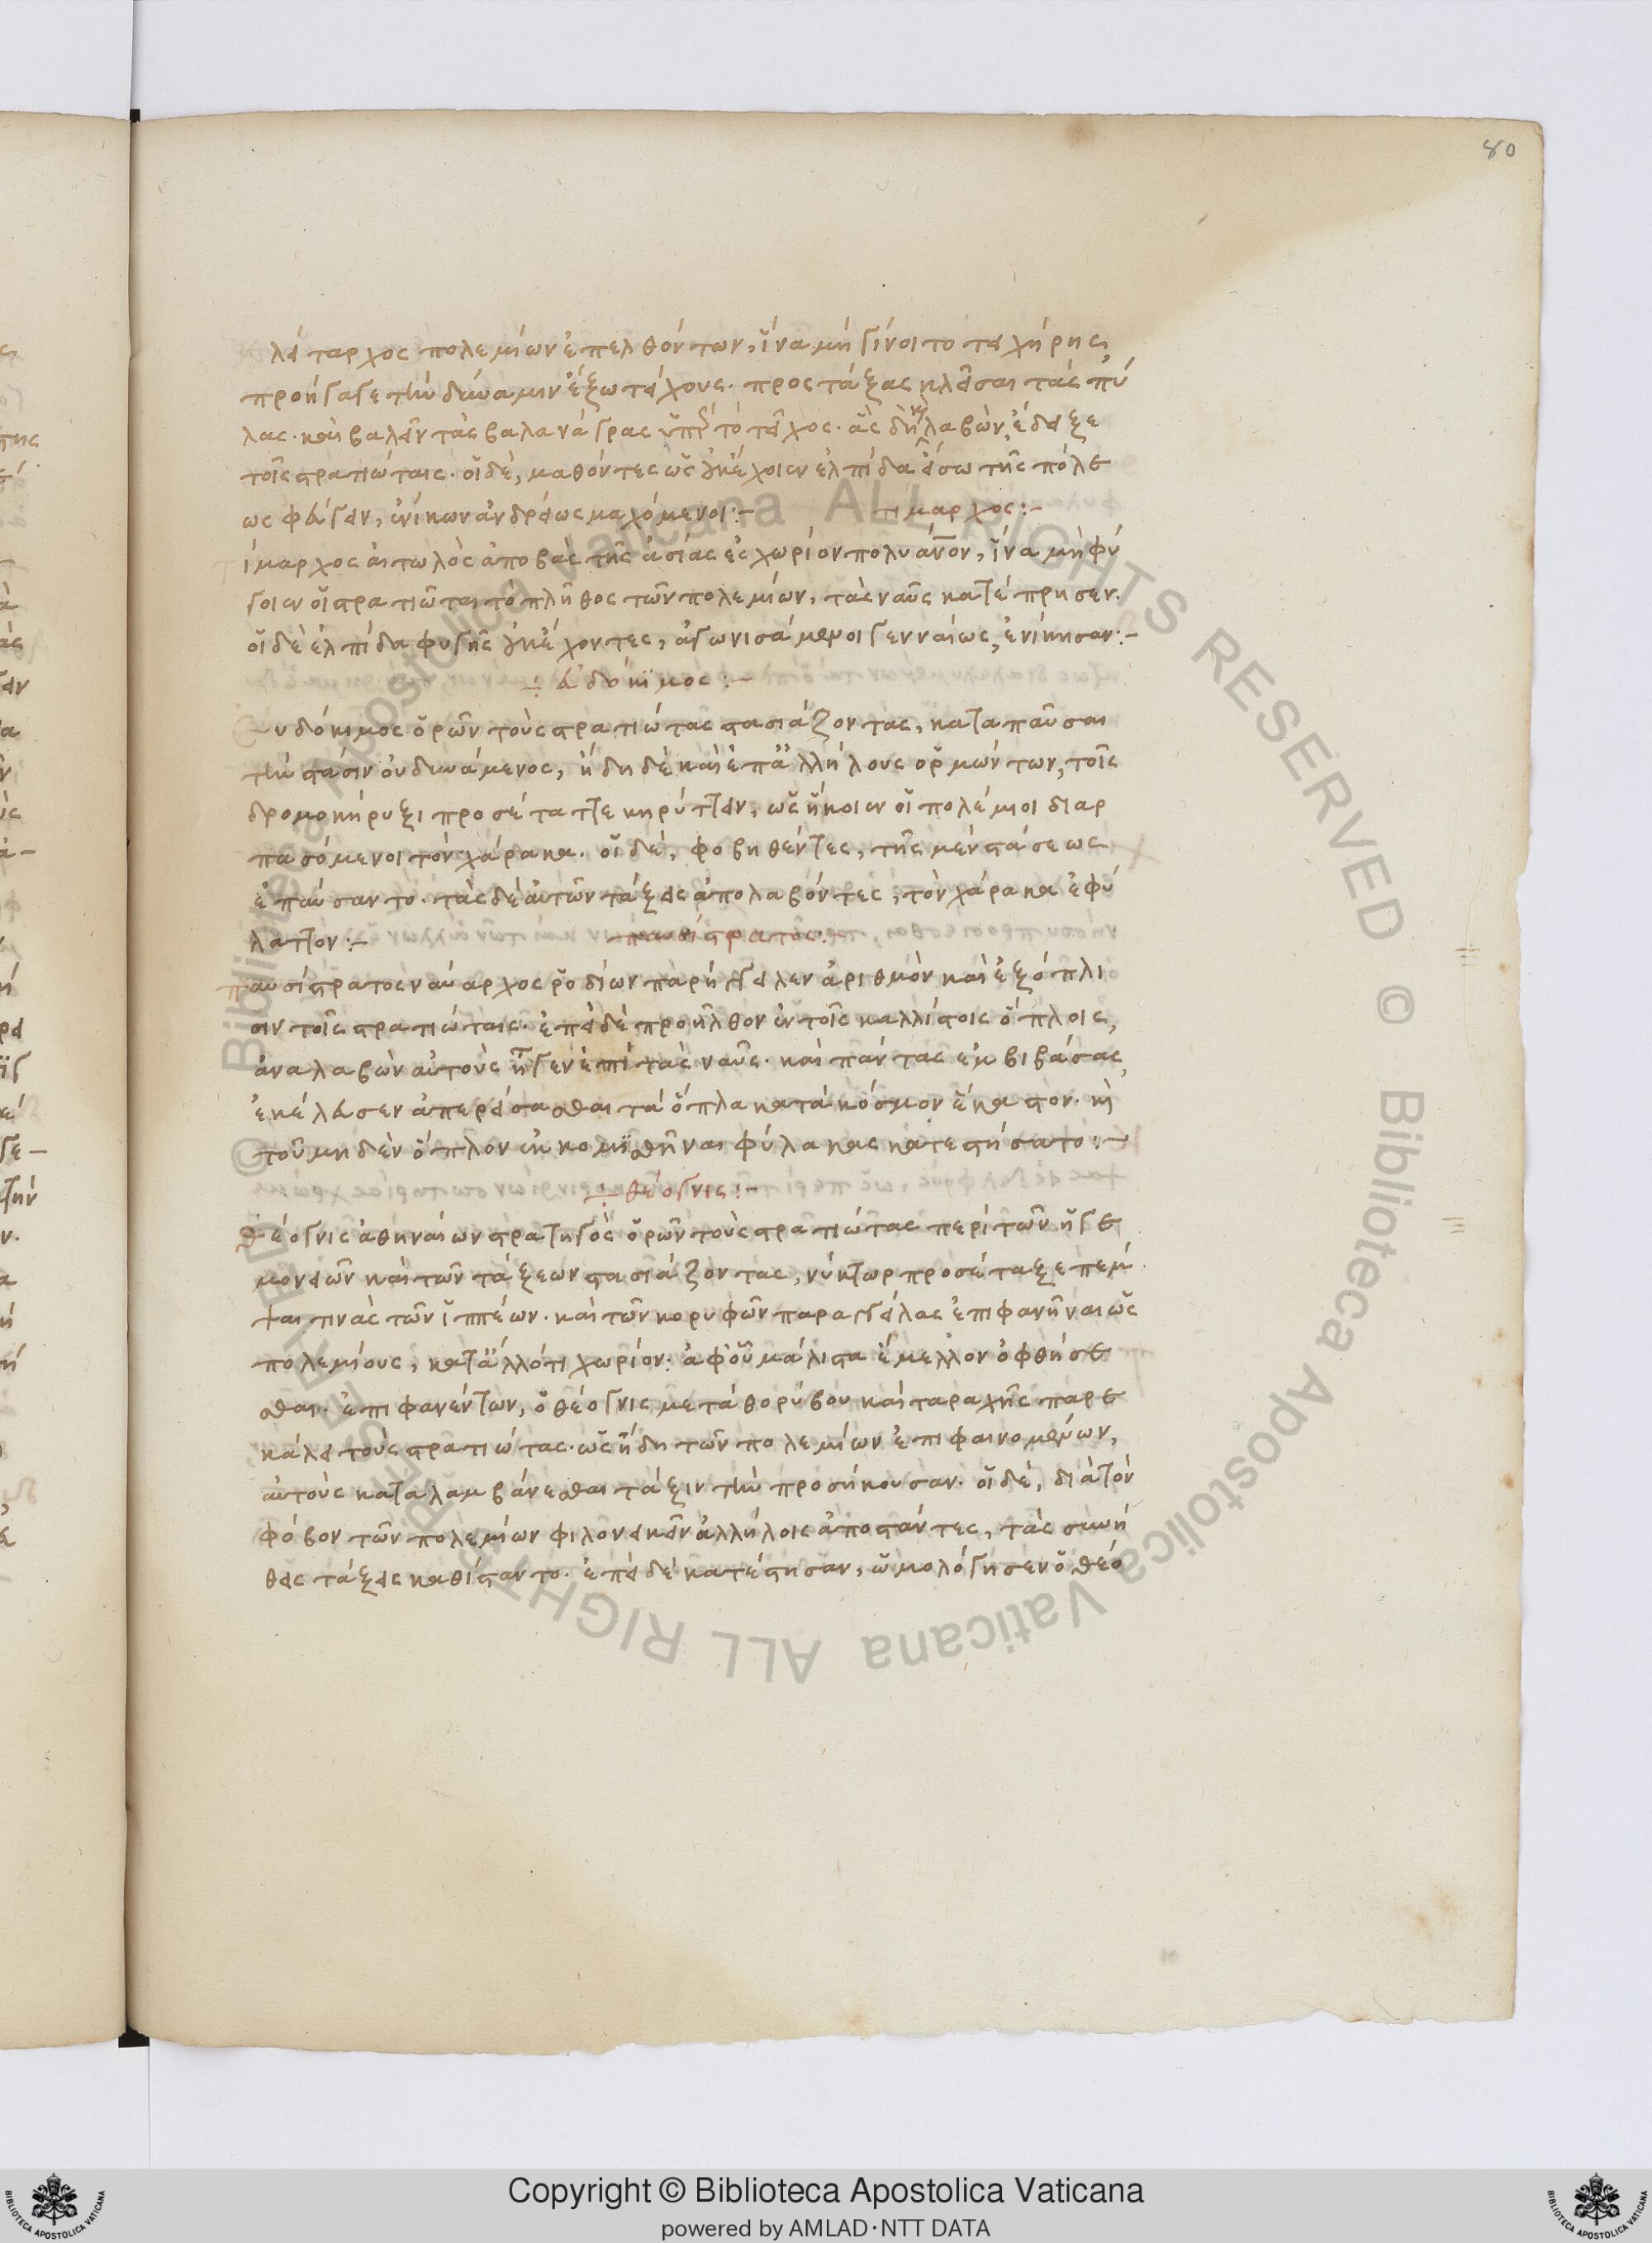 80
λείταρχος πολεμίων ἐπελθόντων, ἵνα μὴ γίνοιτο τειχήρης,
προήγαγε τὴν δύναμιν ἔξω τείχους. προστάξας κλεῖσαι τὰς πύ
λας. καὶ βαλεῖν τὰς βαλανάγρας ὑπὲρ τὸ τεῖχος. ἃς δὴ λαβὼν, ἔδειξε
τοῖς στρατιώταις. οἱ δὲ, μαθόντες ὡς οὐκ ἔχοιεν ἐλπίδα εἴσω τῆς πόλε
ως φεύγειν, ἐνίκων ἀνδρείως μαχόμενοι:-
τίμαρχος:-
ίμαρχος αἰτωλὸς ἀποβὰς τῆς ἀσίας ἐς χωρίον πολυάνον, ἵνα μὴ φύ
γοιεν οἱ στρατιῶται τὸ πλῆθος τῶν πολεμίων, τὰς ναῦς κατέπρησεν.
οἱ δὲ ἐλπίδα φυγῆς οὐκ ἔχοντες, ἀγωνισάμενοι γενναίως, ἐνίκησαν:-
εὐδόκιμος:-
Ευδόκιμος ὁρῶν τοὺς στρατιώτας στασιάζοντας, καταπαῦσαι
τὴν στάσιν οὐ δυνάμενος, ἤδη δὲ καὶ ἐπ' ἀλλήλους ὁρμώντων, τοῖς
δρομοκήρυξι προσέταττε κηρύττειν, ὡς ἥκοιεν οἱ πολέμιοι διαρ
πασόμενοι τὸν χάρακα. οἱ δὲ, φοβηθέντες, τῆς μὲν στάσεως
ἐπαύσαντο. τὰς δὲ αὑτῶν τάξεις ἀπολαβόντες, τὸν χάρακα ἐφύ
λαττον:-
παυσίστρατος:-
παυσίστρατος ναύαρχος ῥοδίων παρήγγειλεν ἀριθμὸν καὶ ἐξόπλι
σιν τοῖς στρατιώταις. ἐπεὶ δὲ προῆλθον ἐν τοῖς καλλίστοις ὅπλοις,
ἀναλαβὼν αὐτοὺς ἦγεν ἐπὶ τὰς ναῦς. καὶ πάντας ἐμβιβάσας,
ἐκέλευσεν ἀπερείσασθαι τὰ ὅπλα κατὰ κόσμον ἕκαστον. καὶ
τοῦ μηδὲν ὅπλον ἐκκομισθῆναι φύλακας κατεστήσατο:-
θέογνις:-
θέογνις ἀθηναίων στρατηγὸς ὁρῶν τοὺς στρατιώτας περὶ τῶν ἡγε
μονειῶν καὶ τῶν τάξεων στασιάζοντας, νύκτωρ προσέταξε πέμ
ψαι τινὰς τῶν ἱππέων. καὶ τῶν κορυφῶν παραγγείλας ἐπιφανῆναι ὡς
πολεμίους, κατ' ἄλλό τι χωρίον. ἀφ' οὗ μάλιστα ἔμελλον ὀφθήσε
σθαι. ἐπιφανέντων, ὁ θέογνις μετὰ θορύβου καὶ ταραχῆς παρε
κάλει τοὺς στρατιώτας. ὡς ἤδη τῶν πολεμίων ἐπιφαινομένων,
αὐτοὺς καταλαμβάνεσθαι τάξιν τὴν προσήκουσαν. οἱ δὲ, διὰ τὸν
φόβον τῶν πολεμίων φιλονεικεῖν ἀλλήλοις ἀποστάντες, τὰς συνή
θεις τάξεις καθίσταντο. ἐπεὶ δὲ κατέστησαν, ὡμολόγησεν ὁ θέο
© Biblioteca Apostolica Vaticana ALL RIGHTS RESERVED © Biblioteca Apostolica Vaticana ALL RIGHTS RESERVED
Copyright © Biblioteca Apostolica Vaticana
powered by AMLAD·NTT DATA